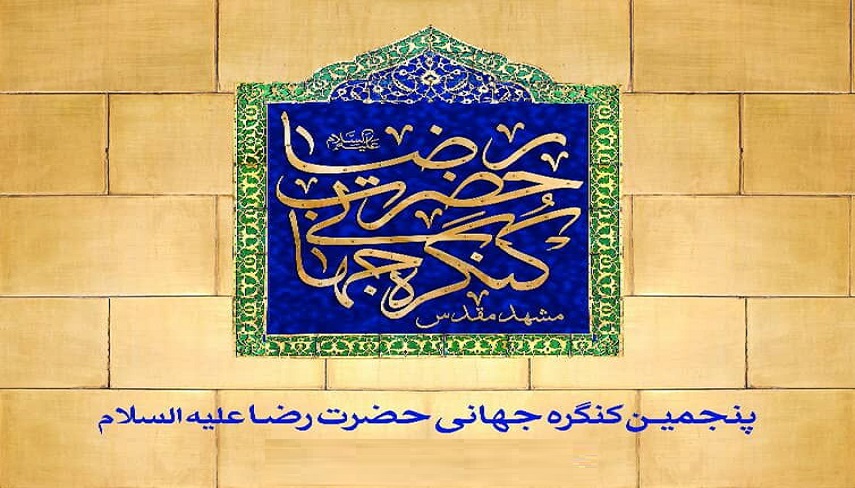 کنگره جهانی
حضرت رضا علیه السلام
مشهد مقدس
پنجمین کنگره جهانی حضرت رضا علیه السلام